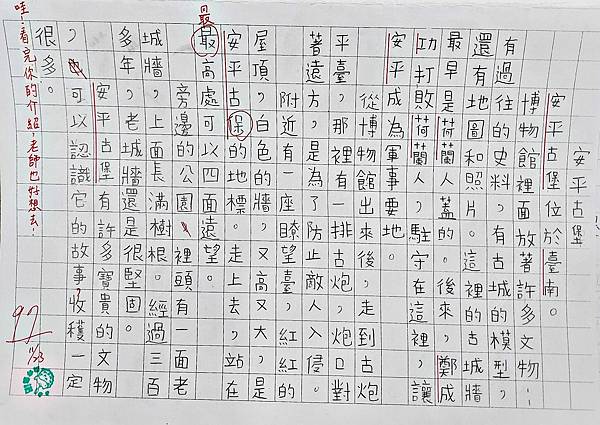 安平古堡
安平古堡位於臺南。
博物館裡面放著許多文物…
有過往的史料,有古城的模型,
還有地圖和照片。這裡的古城牆,
最早是荷蘭人蓋的。後來,鄭成
功打敗荷蘭人,駐守在這裡,讓
安平成為軍事要地。
從博物館出來後,走到古炮
平臺,那裡有一排古炮,炮口對
著遠方,是為了防止敵人入侵。
附近有一座瞭望臺,紅紅的
屋頂,白色的牆,又高又大,是
安平古保的地標。走上去,站在
最
最高處可以四面遠望。
旁邊的公園裡頭有一面老
城牆,上面長滿樹根。經過三百
多年,老城牆還是很堅固。
安平古堡有許多寶貴的文物
,也可以認識它的故事,收穫一定
很多。
哇!看完你的介紹,老師也好想去!
97
11/23